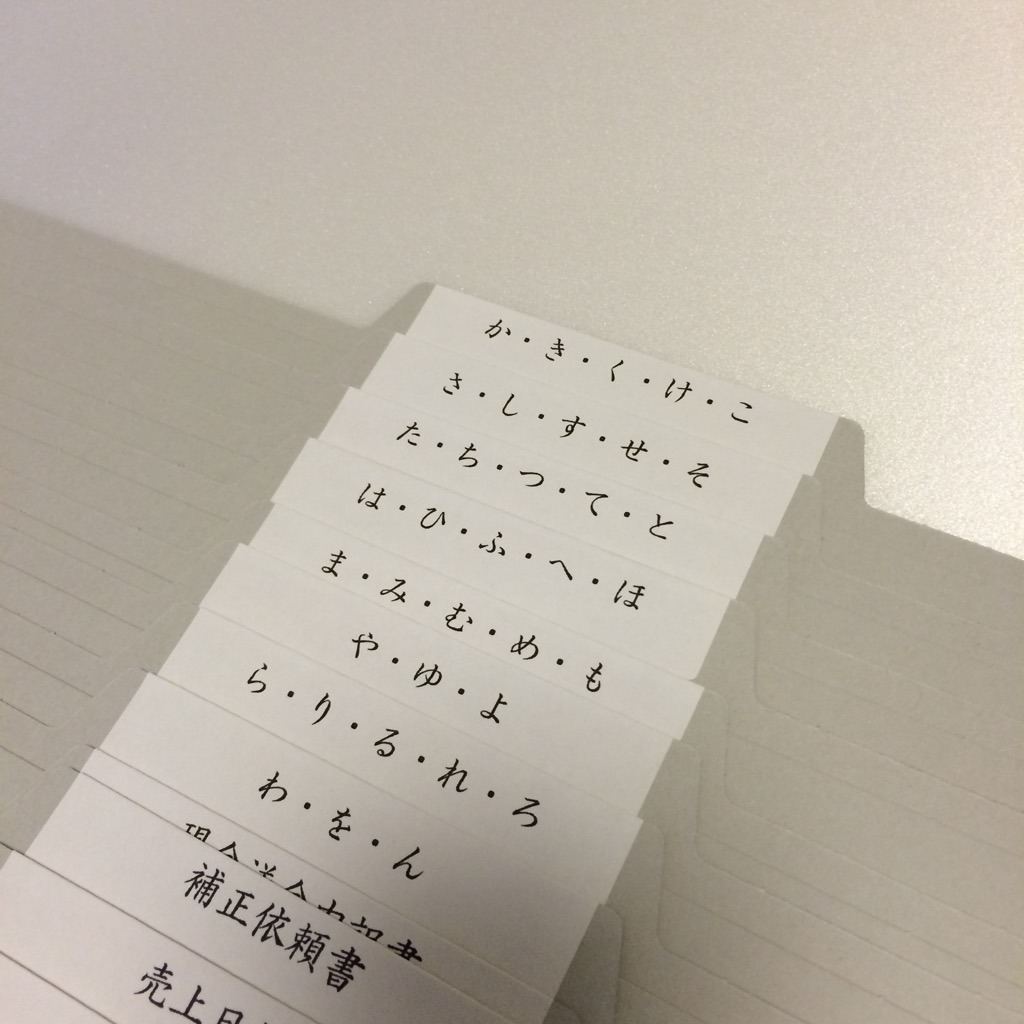 か・き・く・け・こ
さ・し・す・せ・そ
た・ち・つ・て・と
は・ひ・ふ・へ・ほ
ま・み・む・め・も
や・ゆ・よ
ら・り・る・れ・ろ
わ・を・ん
補正依頼書
売上日